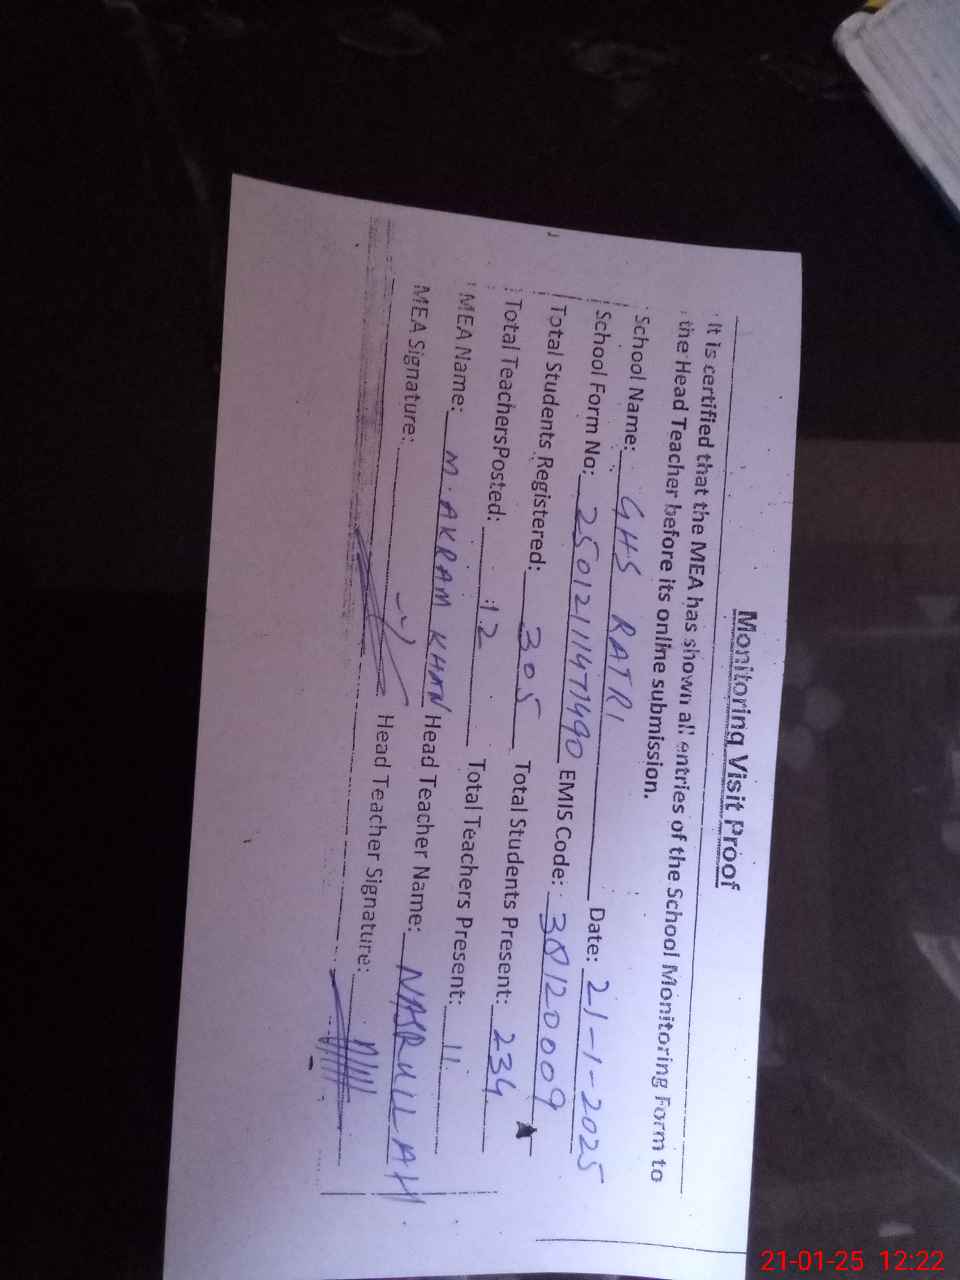 Monitoring Visit Proof
It is certified that the MEA has shown all entries of the School Monitoring Form to
the Head Teacher before its online submission.
School Name: GHS RATRI Date: 21-1-2025
School Form No: 25012111471490 EMIS Code: 38120009
Total Students Registered: 305 Total Students Present: 234
Total TeachersPosted: 12 Total Teachers Present: 11
MEA Name: M. AKRAM KHAN Head Teacher Name: NASRULLAH
MEA Signature: Head Teacher Signature:
21-01-25 12:22